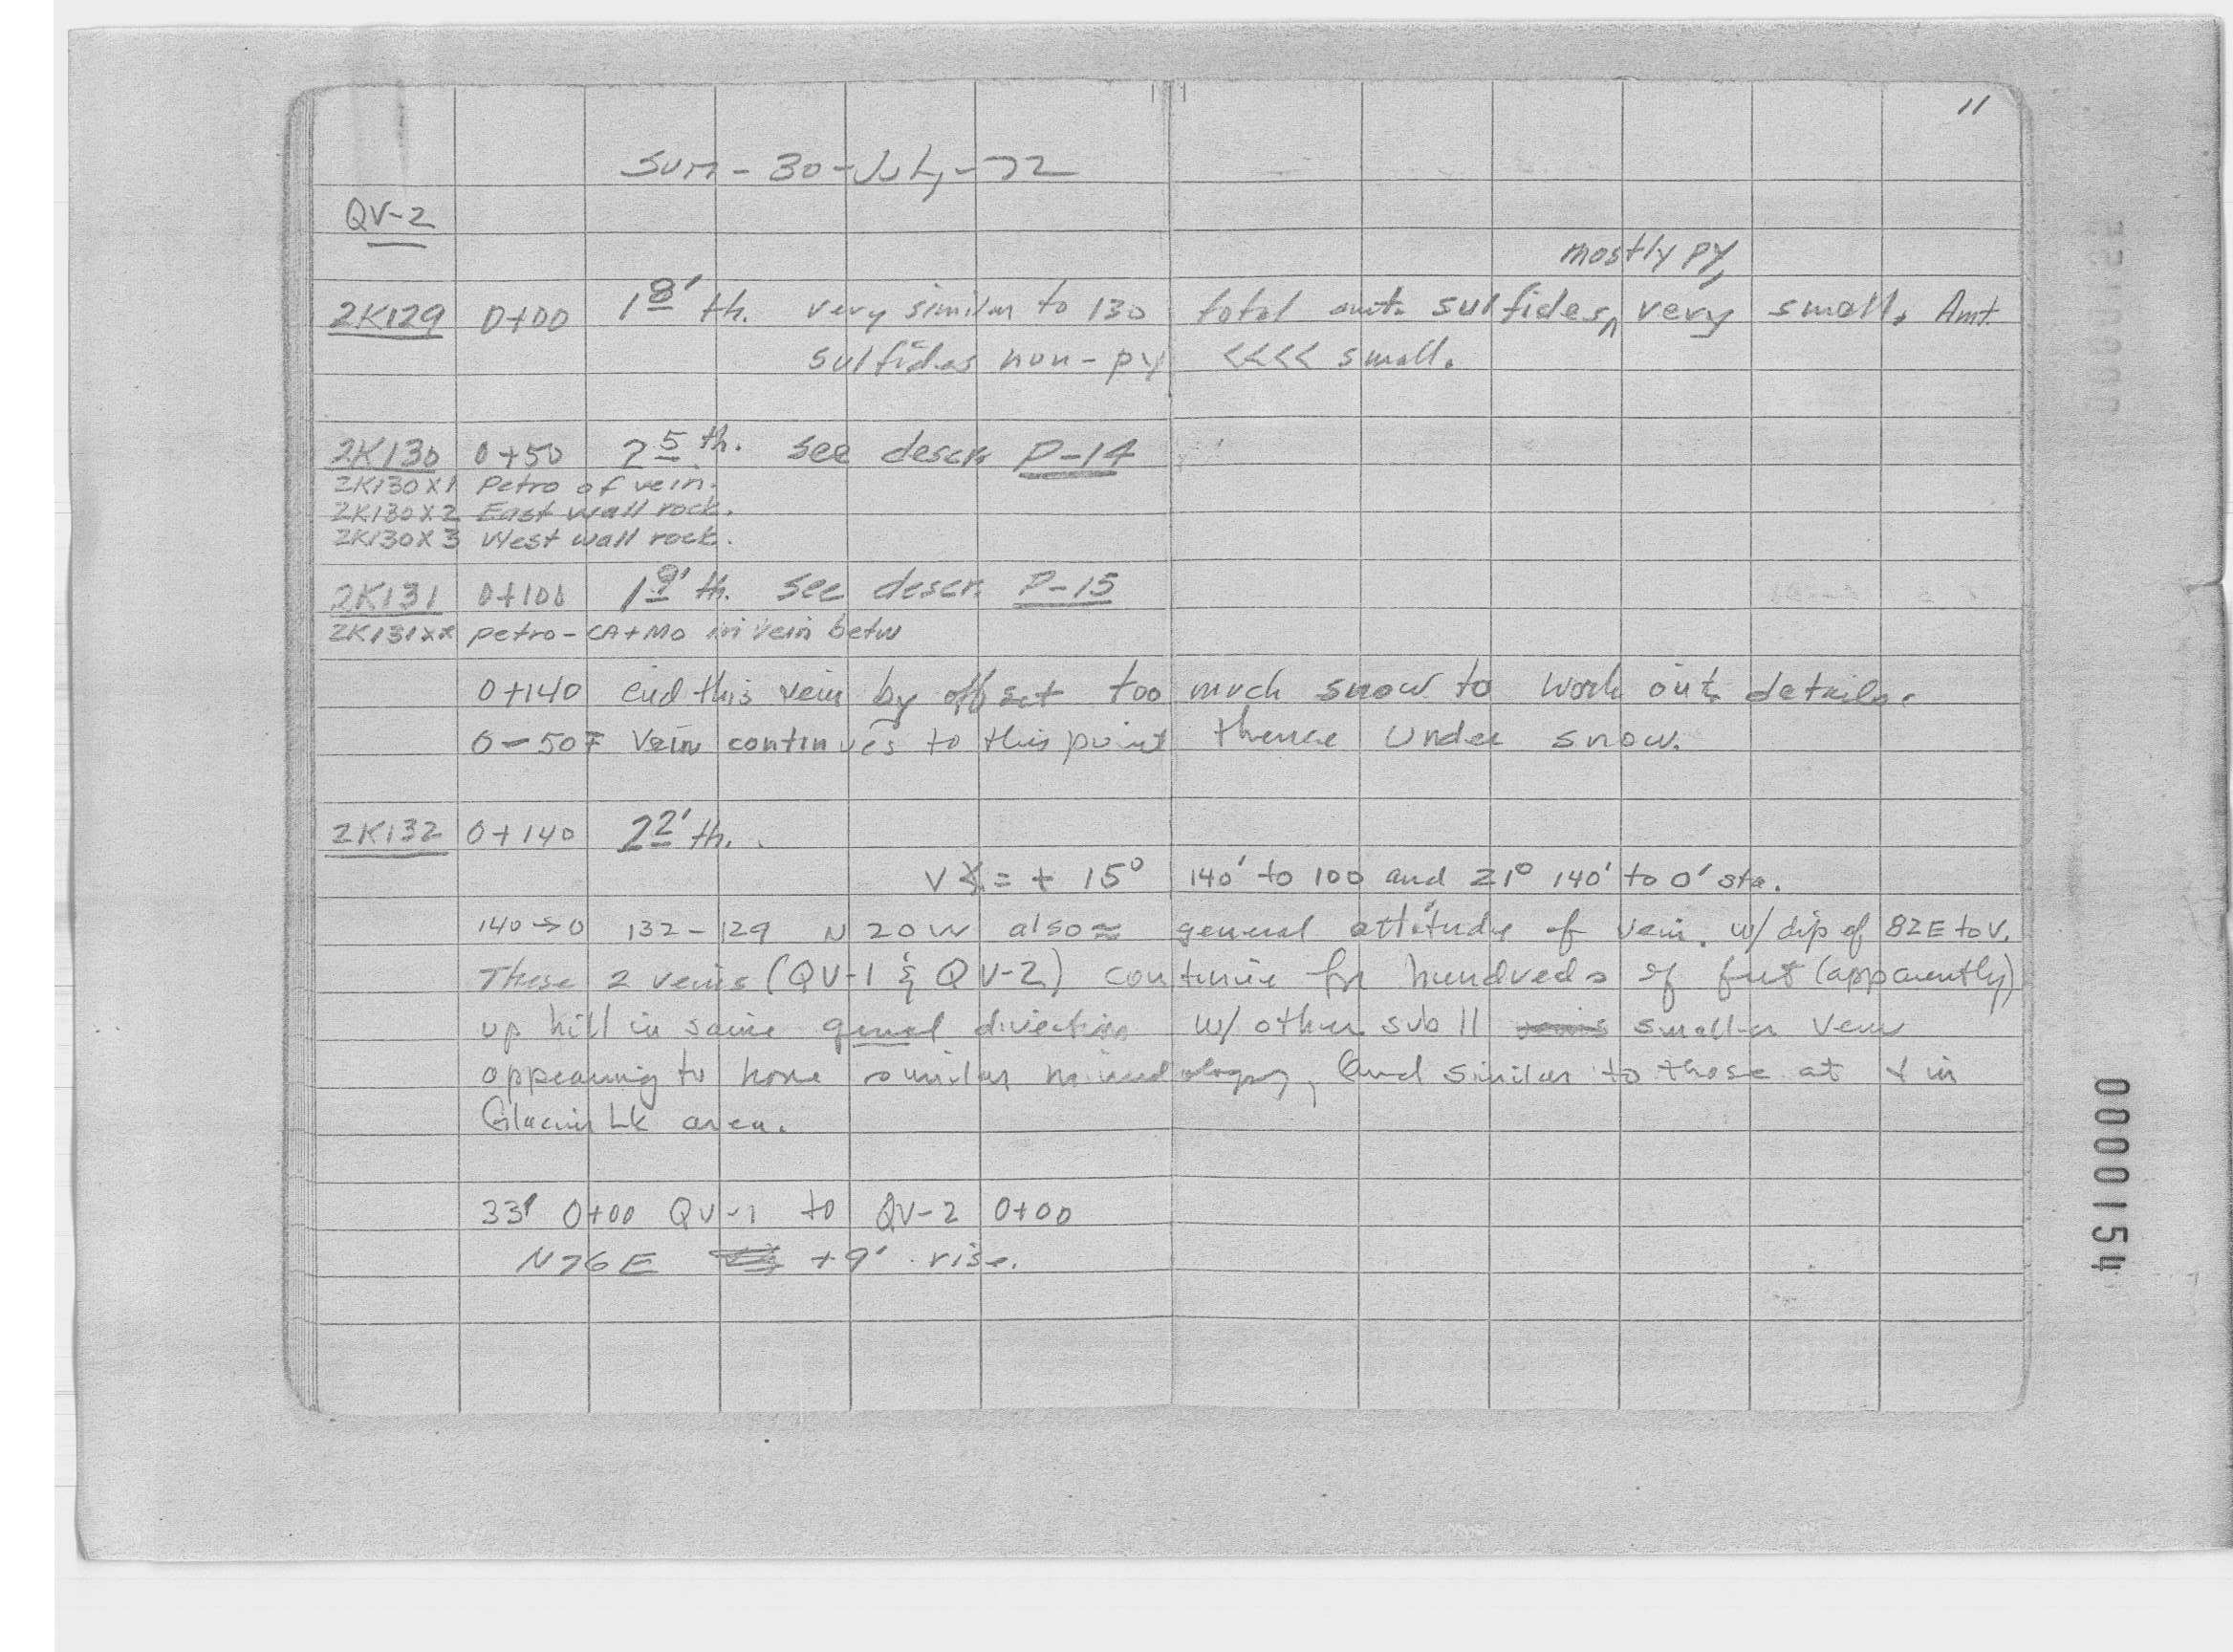 11
Sun - 30 - July - 72
QV-2
mostly py,
2K129 0+00 1 8' th. very similar to 130 total amt. sulfides, very small. Amt.
sulfides non-py <<<< small.
2K130 0+50 2 5 th. see descr. P-14
2K130X1 Petro of vein.
2K130X2 East wall rock.
2K130X3 West wall rock.
2K131 0+100 1 9' th. see descr. P-15
2K131XX petro - CA+MO in vein betw
0+140 end this vein by offset too much snow to work out details.
0-50 ∓ Vein continues to this point thence under snow.
2K132 0+140 2 2' th.
V∢ = + 15° 140' to 100 and 21° 140' to 0' sta.
140→0 132-129 N20W also ≈ general attitude of vein. w/ dip of 82E to V.
These 2 veins (QV-1 & QV-2) continue for hundreds of feet (apparently)
up hill in same general direction w/ other sub || smaller vein
appearing to have similar mineralogy, and similar to those at & in
Glacier Lk area.
33' 0+00 QV-1 to QV-2 0+00
N76E +9' rise.
0000154